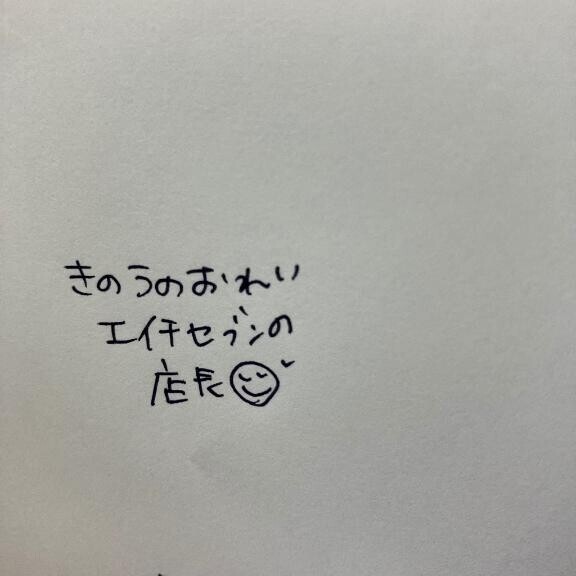 きのうのおれい
エイチセブンの
店長